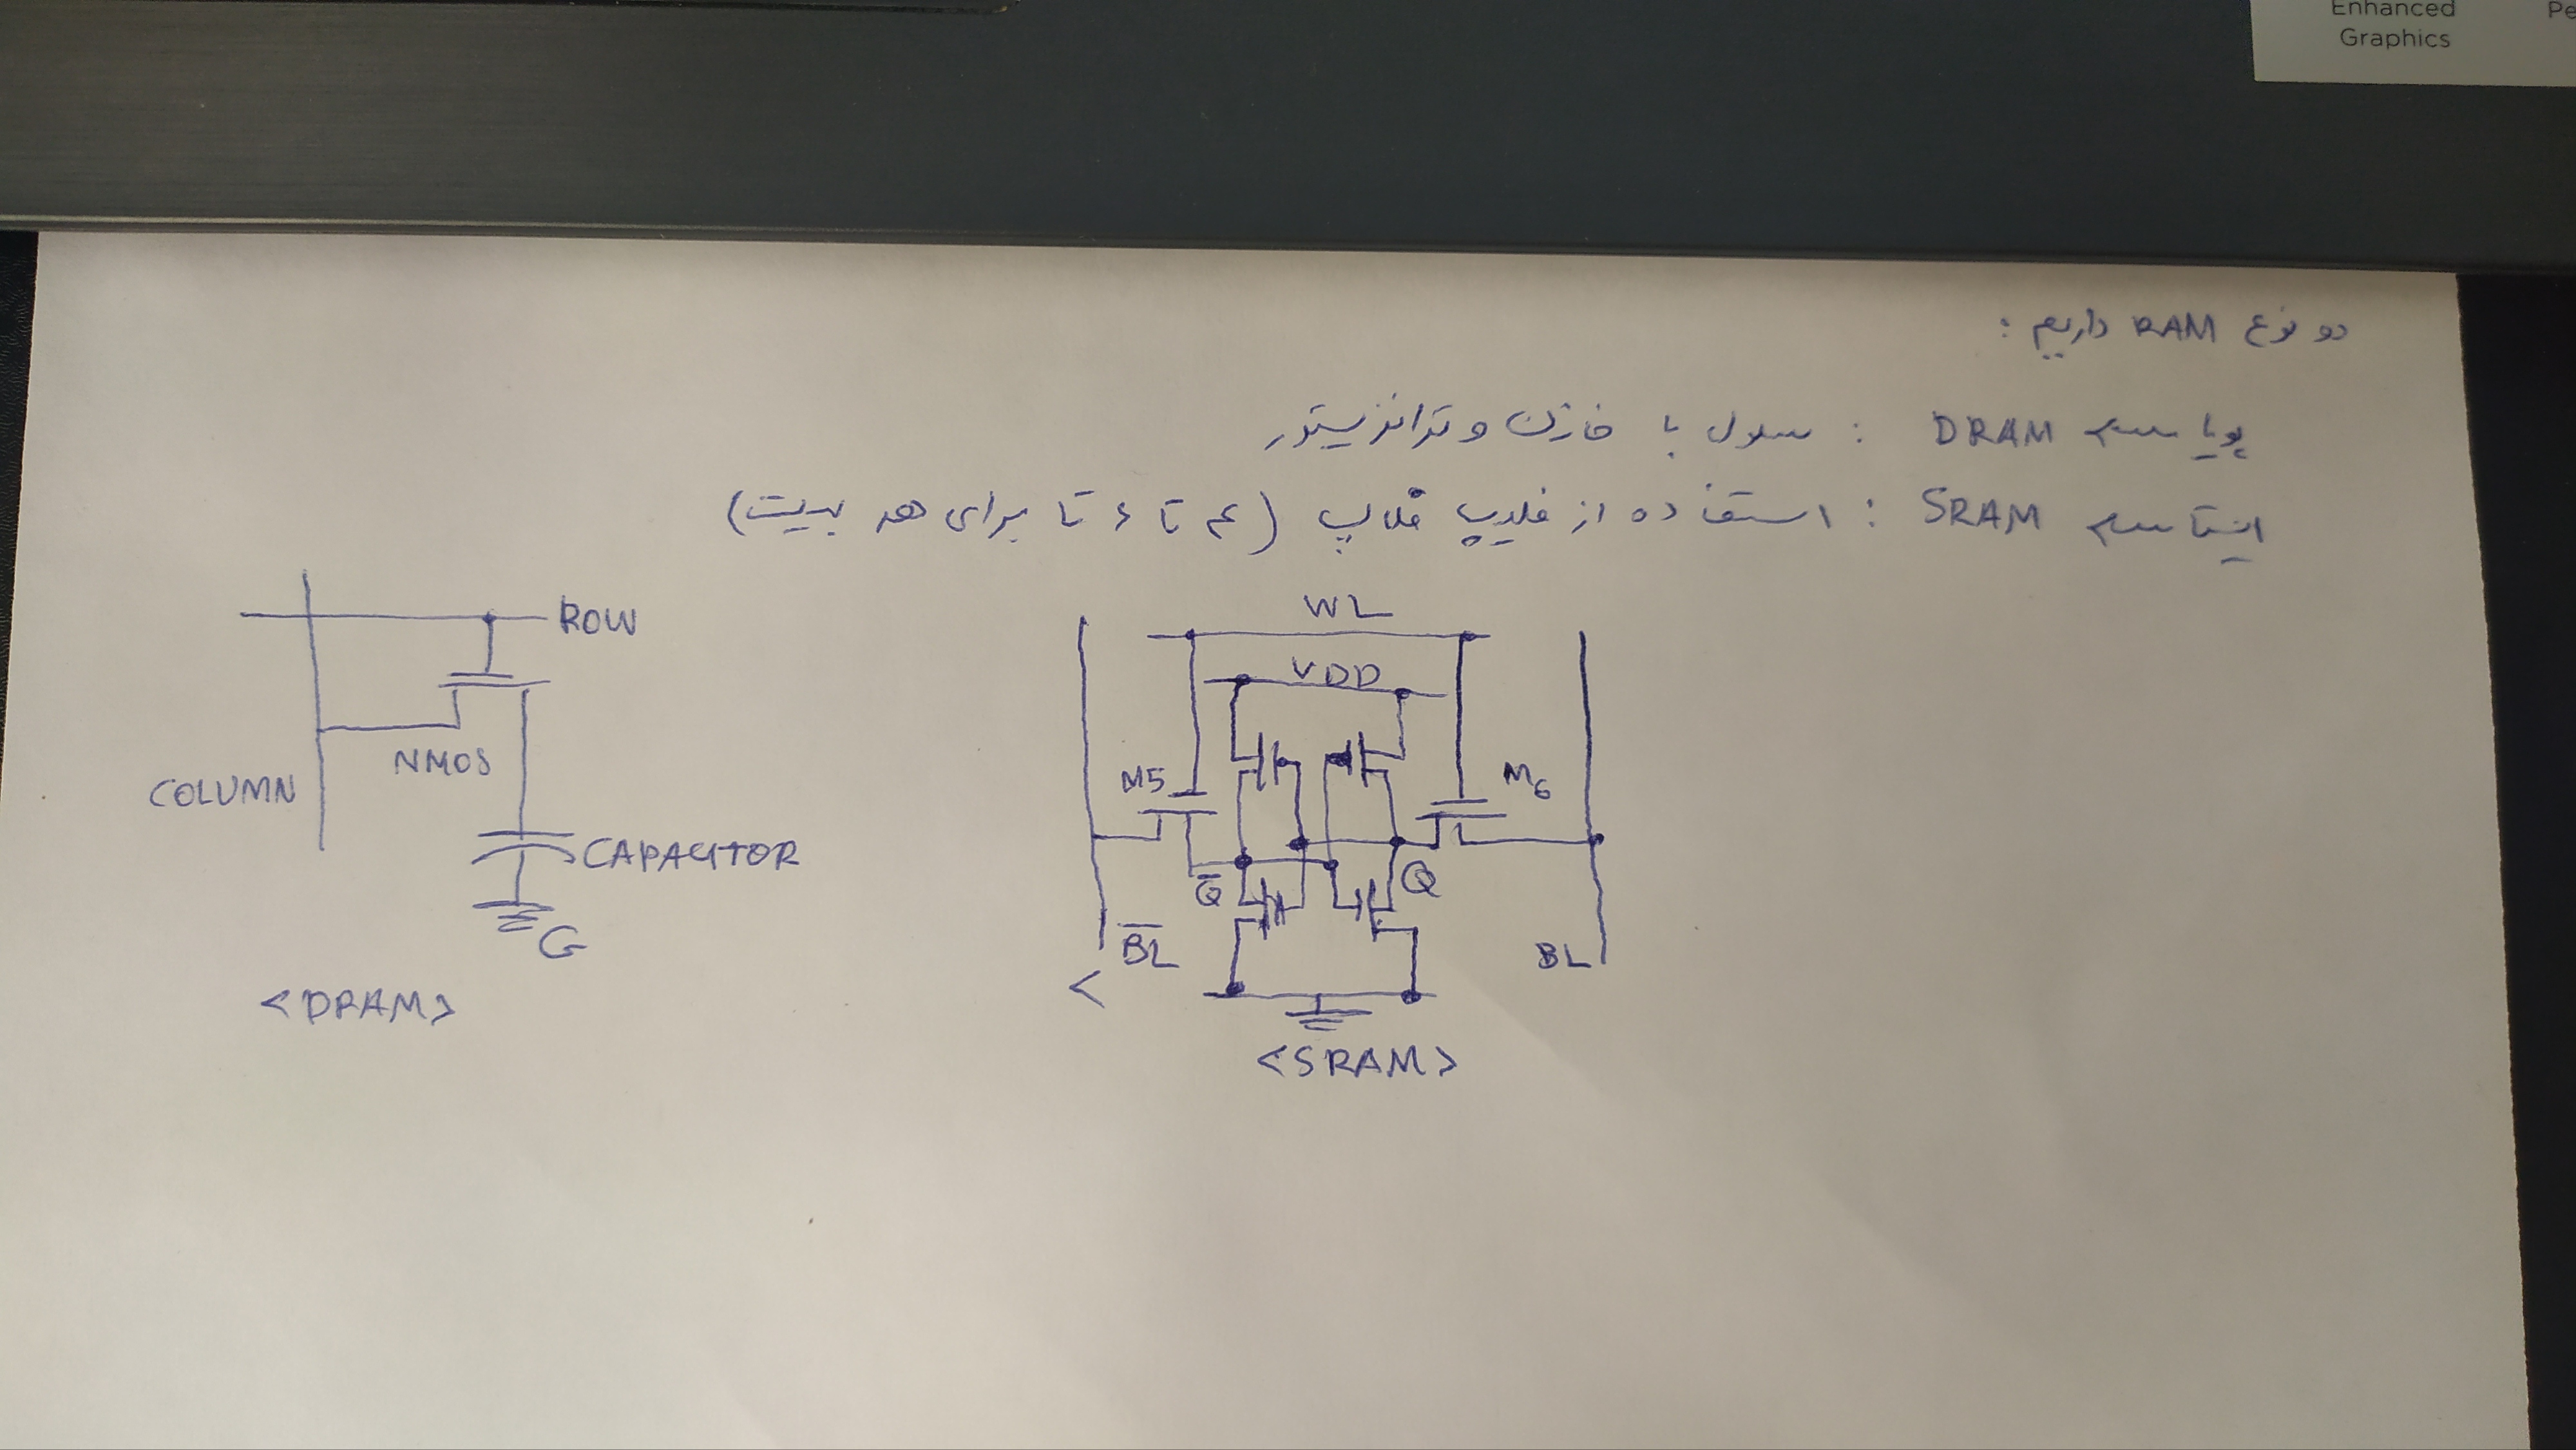 Enhanced
Graphics
Pe
دو نوع RAM داریم :
پویا ــــ DRAM : سلول با خازن و ترانزیستور
ایستا ــــ SRAM : استفاده از فلیپ فلاپ (۴ تا ۶ تا برای هر بیت)
ROW
NMOS
COLUMN
CAPACITOR
G
<DRAM>
WL
VDD
M5
M6
Q̅
Q
B̅L̅
BL
<
<SRAM>